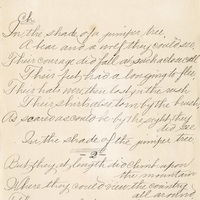 In the shade of a juniper tree,
A bear and a wolf they could see,
Their courage did fall, at such a call
Their feet had a longing to flee,
Their hats were then lost in the rush
Their shirts were torn by the brush
As scared as could be by the sight they
did see
In the shade of the juniper tree
2
But they at length did climb upon
the mountain
Where they could view the country
all around